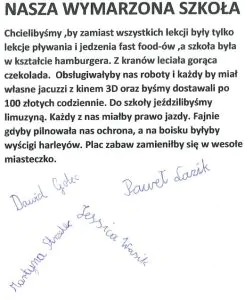 NASZA WYMARZONA SZKOŁA
Chcielibyśmy ,by zamiast wszystkich lekcji były tylko
lekcje pływania i jedzenia fast food-ów ,a szkoła była
w kształcie hamburgera. Z kranów leciała gorąca
czekolada. Obsługiwałyby nas roboty i każdy by miał
własne jacuzzi z kinem 3D oraz byśmy dostawali po
100 złotych codziennie. Do szkoły jeździlibyśmy
limuzyną. Każdy z nas miałby prawo jazdy. Fajnie
gdyby pilnowała nas ochrona, a na boisku byłyby
wyścigi harleyów. Plac zabaw zamieniłby się w wesołe
miasteczko.
Dawid
Paweł Łazik
Martyna
Jessica